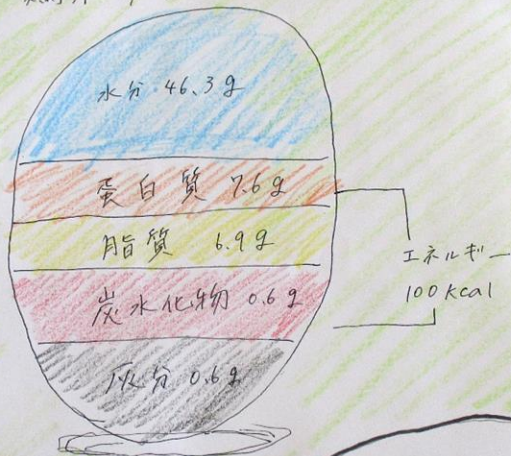 水分 46.3g
蛋白質 7.6g
脂質 6.9g
炭水化物 0.6g
灰分 0.6g
エネルギー
100kcal